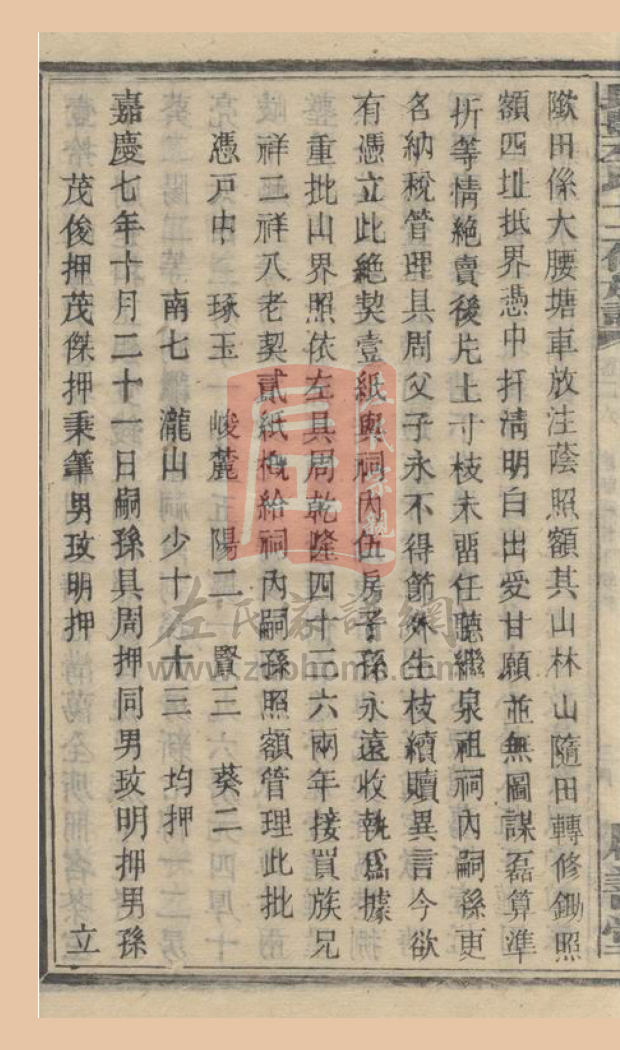 歟田係大腰塘車放注蔭照額其山林山隨田轉修鋤照
額四址抵界憑中扦清明白出受甘願並無圖謀磊算準
折等情絕賣後片土寸枝未留任聽繼泉祖祠內嗣孫更
名納稅管理具周父子永不得節外生枝續贖異言今欲
有憑立此絕契壹紙與祠內伍房子孫永遠收執為據
重批山界照依左具周乾隆四十二六兩年接買族兄
祥二祥八老契貳紙概給祠內嗣孫照額管理此批
憑戶中 琢玉一 峻麓 陽二 賢三 葵二
南七 瀧山 少十 十三 均押
嘉慶七年十月二十一日嗣孫具周押同男玫明押男孫
茂俊押茂傑押秉筆男玫明押 立
左氏家譜網
www.zuohome.com